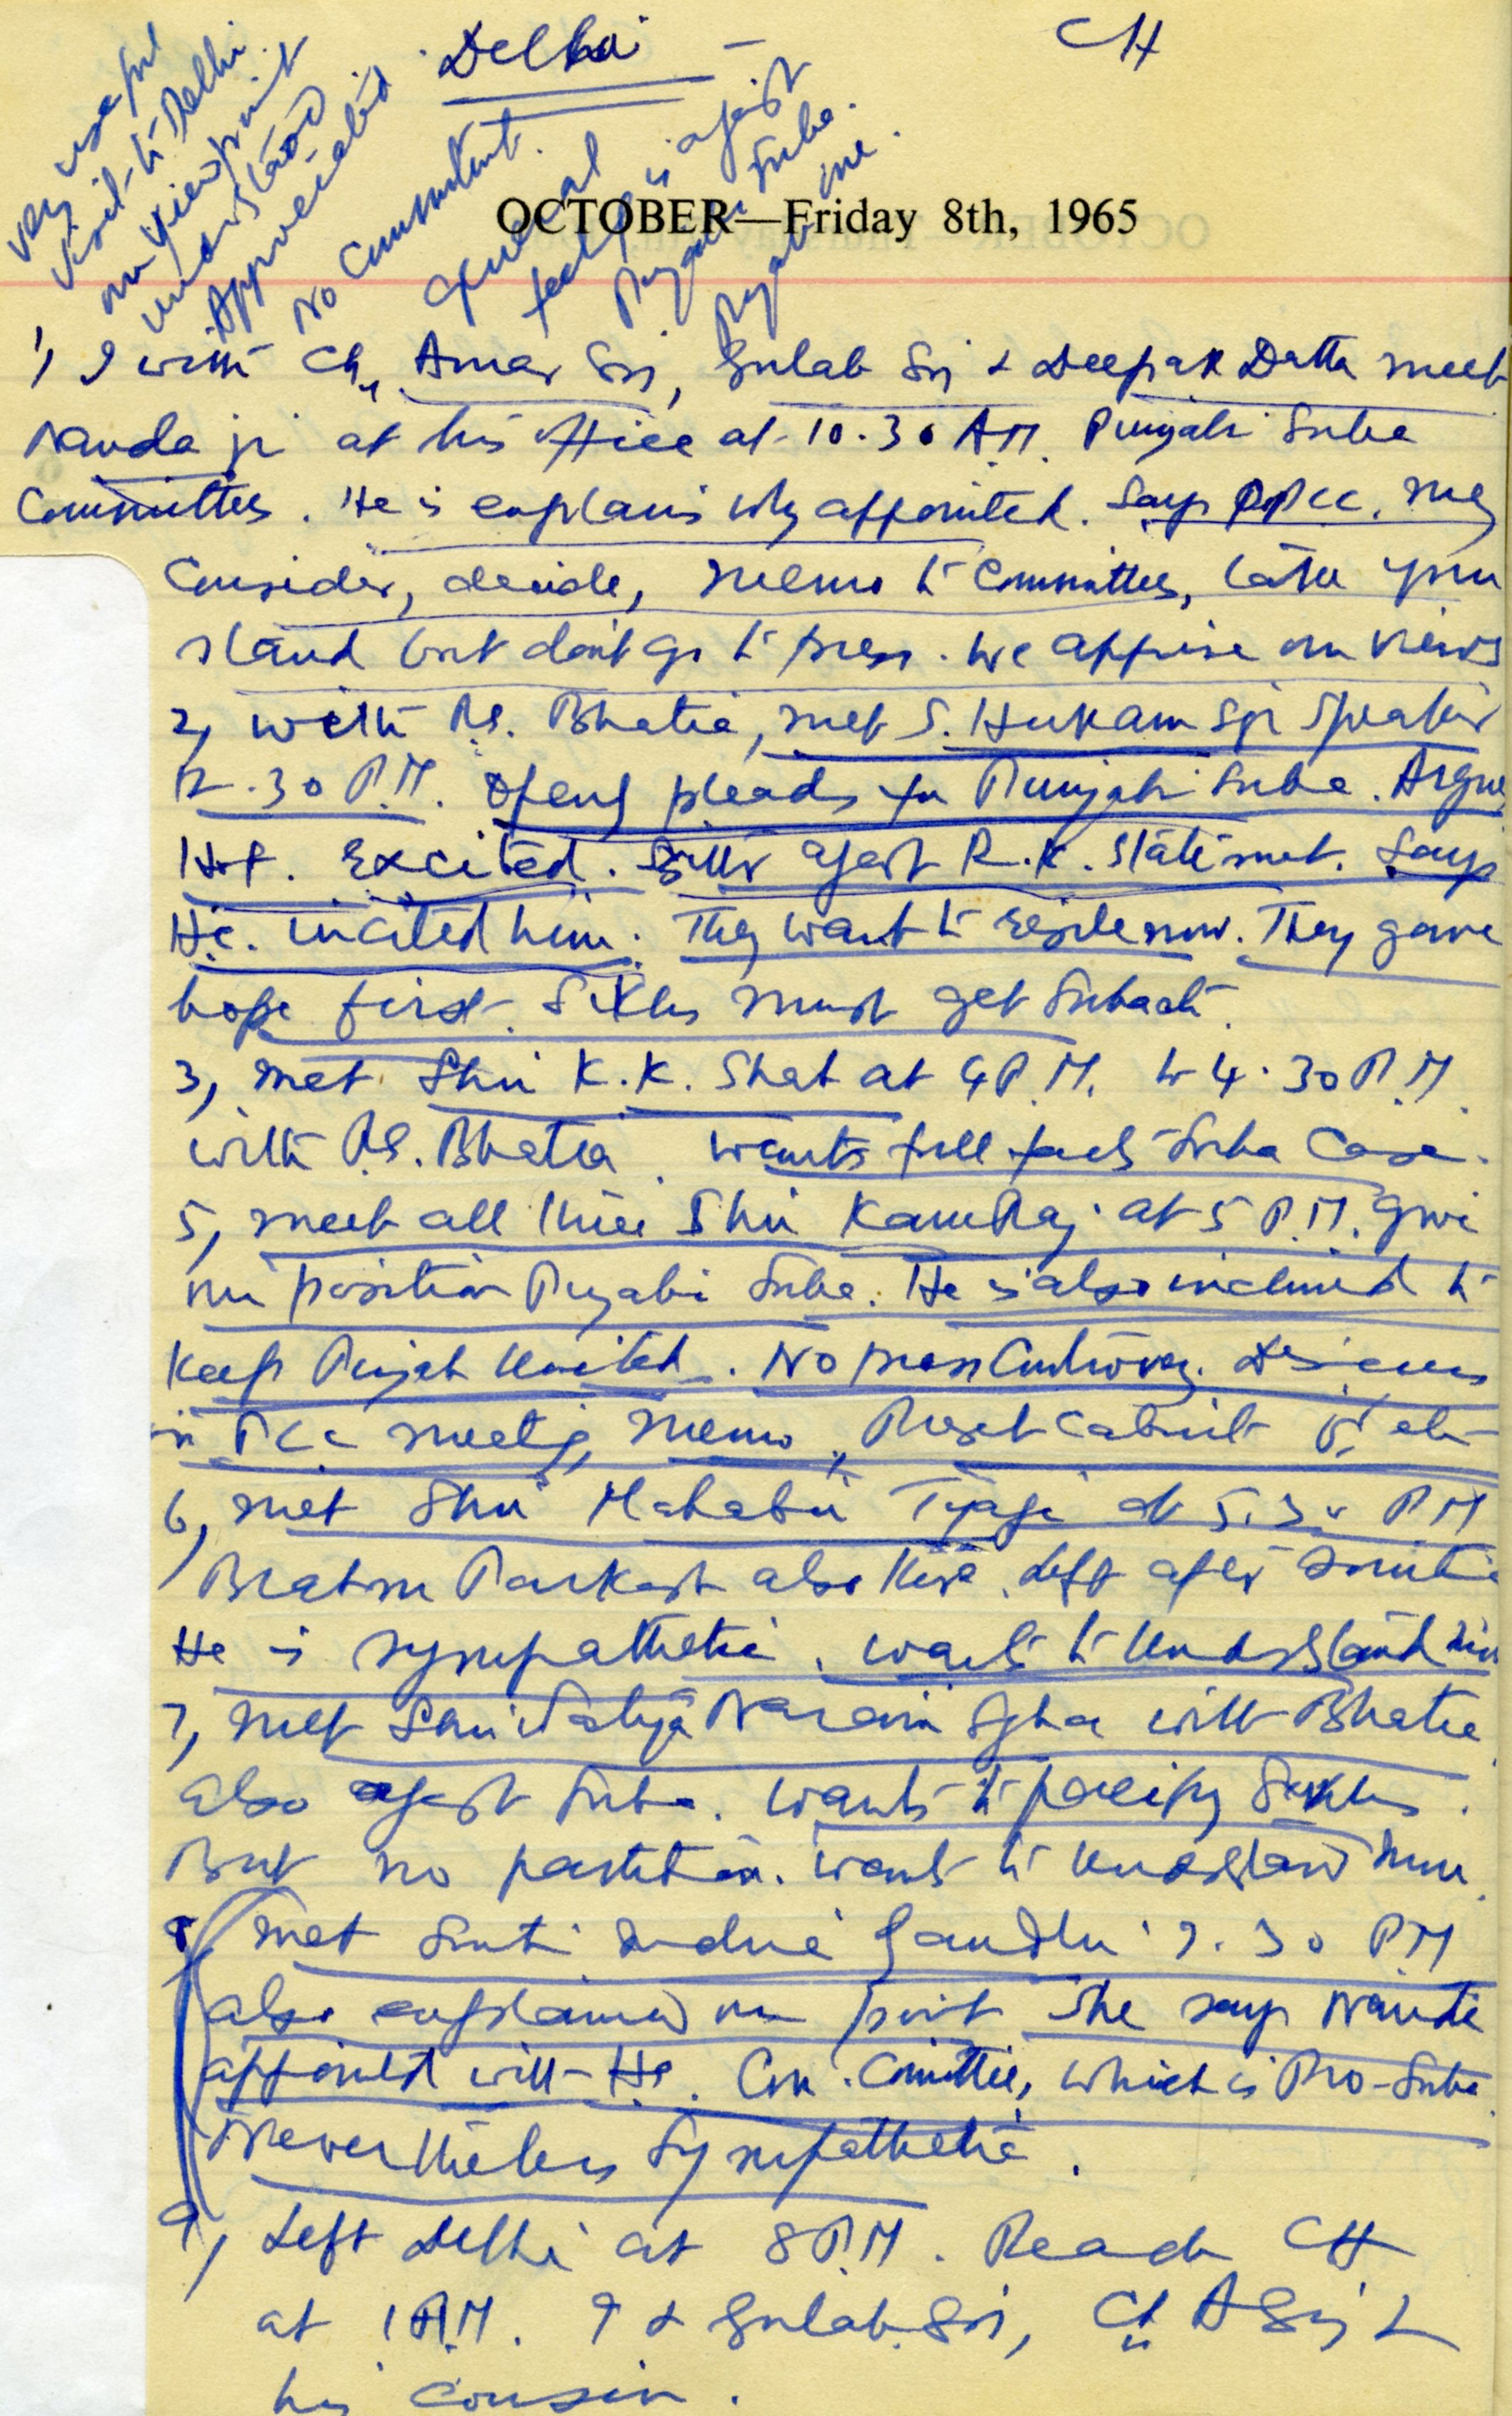 Delhi - CH
very useful
visit to Delhi
our viewpoint
understood
Appreciated
No Commitment.
General
feeling is against
Punjabi Suba.
OCTOBER—Friday 8th, 1965
1, I with Ch,, Amar Sn, Gulab Sn & Deepak Datta meet
Nanda ji at his office at 10.30 A.M. Punjabi Suba
Committee. He explains why appointed. Says PPCC. may
Consider, decide, memo to Committee, later your
stand but don't go to press. We apprise our views
2, with P.S. Bhatia, met S. Hukam Sn Speaker
12.30 P.M. Openly pleads for Punjabi Suba. Argue
Hot. Excited. Bitter agest R.K. Statemet. Says
He. incited him. They want to now. They gave
hope first. Sikhs must get Suba
3, met Shri K.K. Shah at 4 P.M. to 4.30 P.M.
with P.S. Bhatia. wants full facts Suba Case.
5, meet all three Shri KamRaj at 5 P.M. give
our position Punjabi Suba. He is also inclined to
Keep Punjab United. No press Controversy. Discuss
in PCC meeting, memo,, Cabinet
6, met Shri Mahabir Tyagi at 5.30 PM
Brahm Parkash also there. left after
He is sympathetic. wants to Understand
7, met Shri Satya Narain Sgha with Bhatia
also agest Suba. Wants to pacify Sikhs.
But no partition. Wants to Understand more.
8, met Smti Indira Gandhi 7.30 PM
also explained our point She says Nanda
appointed with He. Con. Comittee, which is Pro-Suba.
Nevertheless Sympathetic.
9, Left Delhi at 8 P.M. Reach CH
at 1 A.M. I & Gulab Sn, Ch,, A Sn &
his cousin.